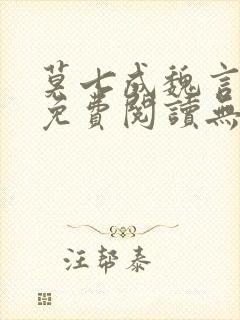 莫七成魏言
免費閱讀無
汪幇泰